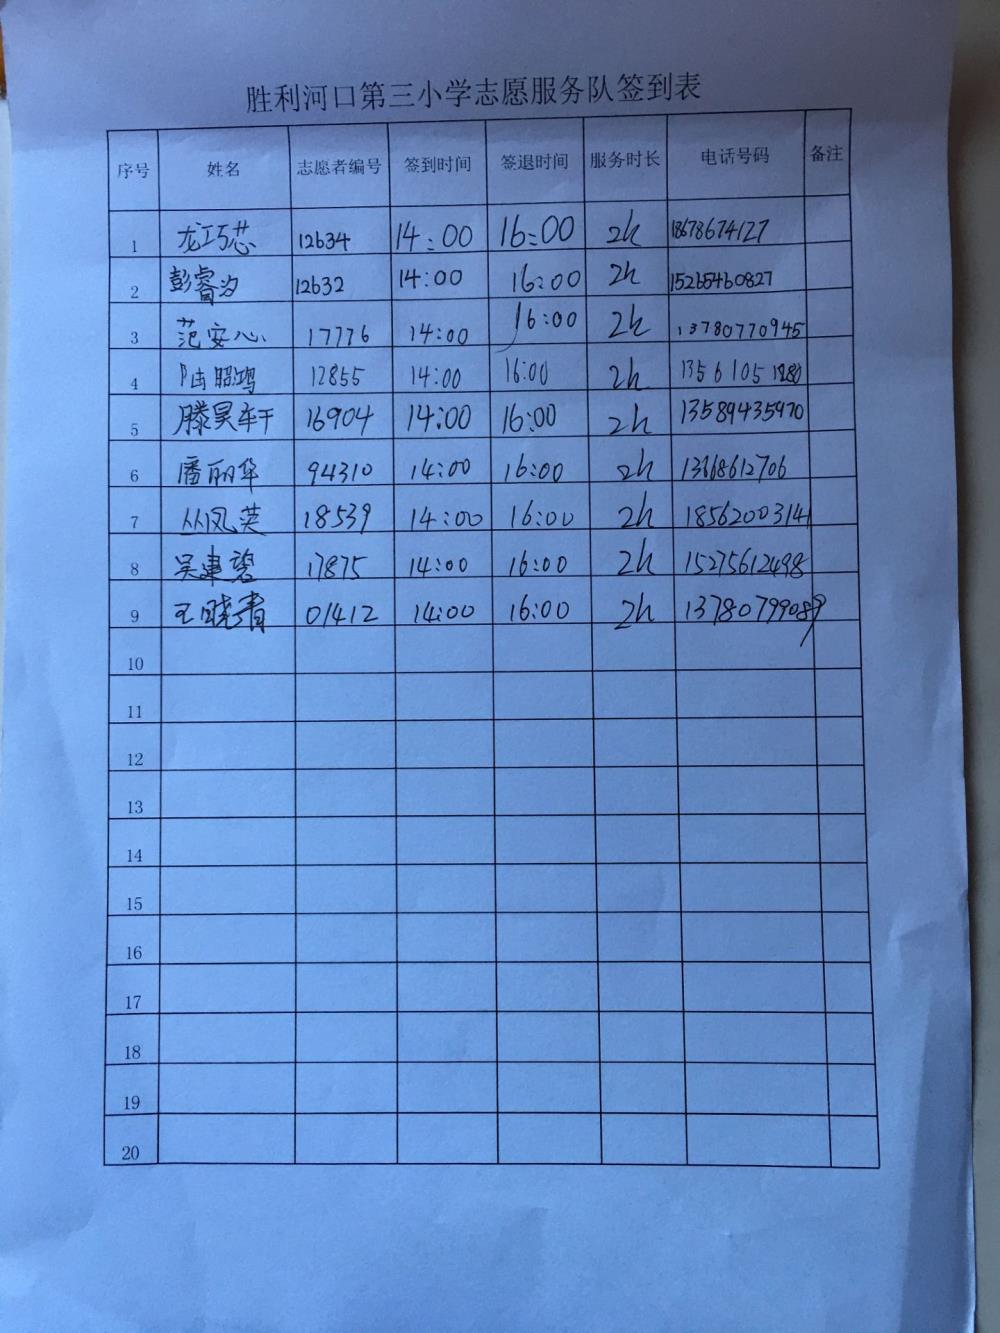 胜利河口第三小学志愿服务队签到表
序号 姓名 志愿者编号 签到时间 签退时间 服务时长 电话号码 备注
1 龙巧芯 12634 14:00 16:00 2h 18678674127
2 彭睿汐 12632 14:00 16:00 2h 15265460827
3 范安心 17776 14:00 16:00 2h 13780770945
4 陆照鸿 12855 14:00 16:00 2h
5 滕昊轩 16904 14:00 16:00 2h 13589435970
6 潘丽华 94310 14:00 16:00 2h 13668612706
7 丛凤英 18539 14:00 16:00 2h 18562003141
8 吴建碧 17875 14:00 16:00 2h 15275612498
9 王晓青 01412 14:00 16:00 2h 13780799089
10
11
12
13
14
15
16
17
18
19
20